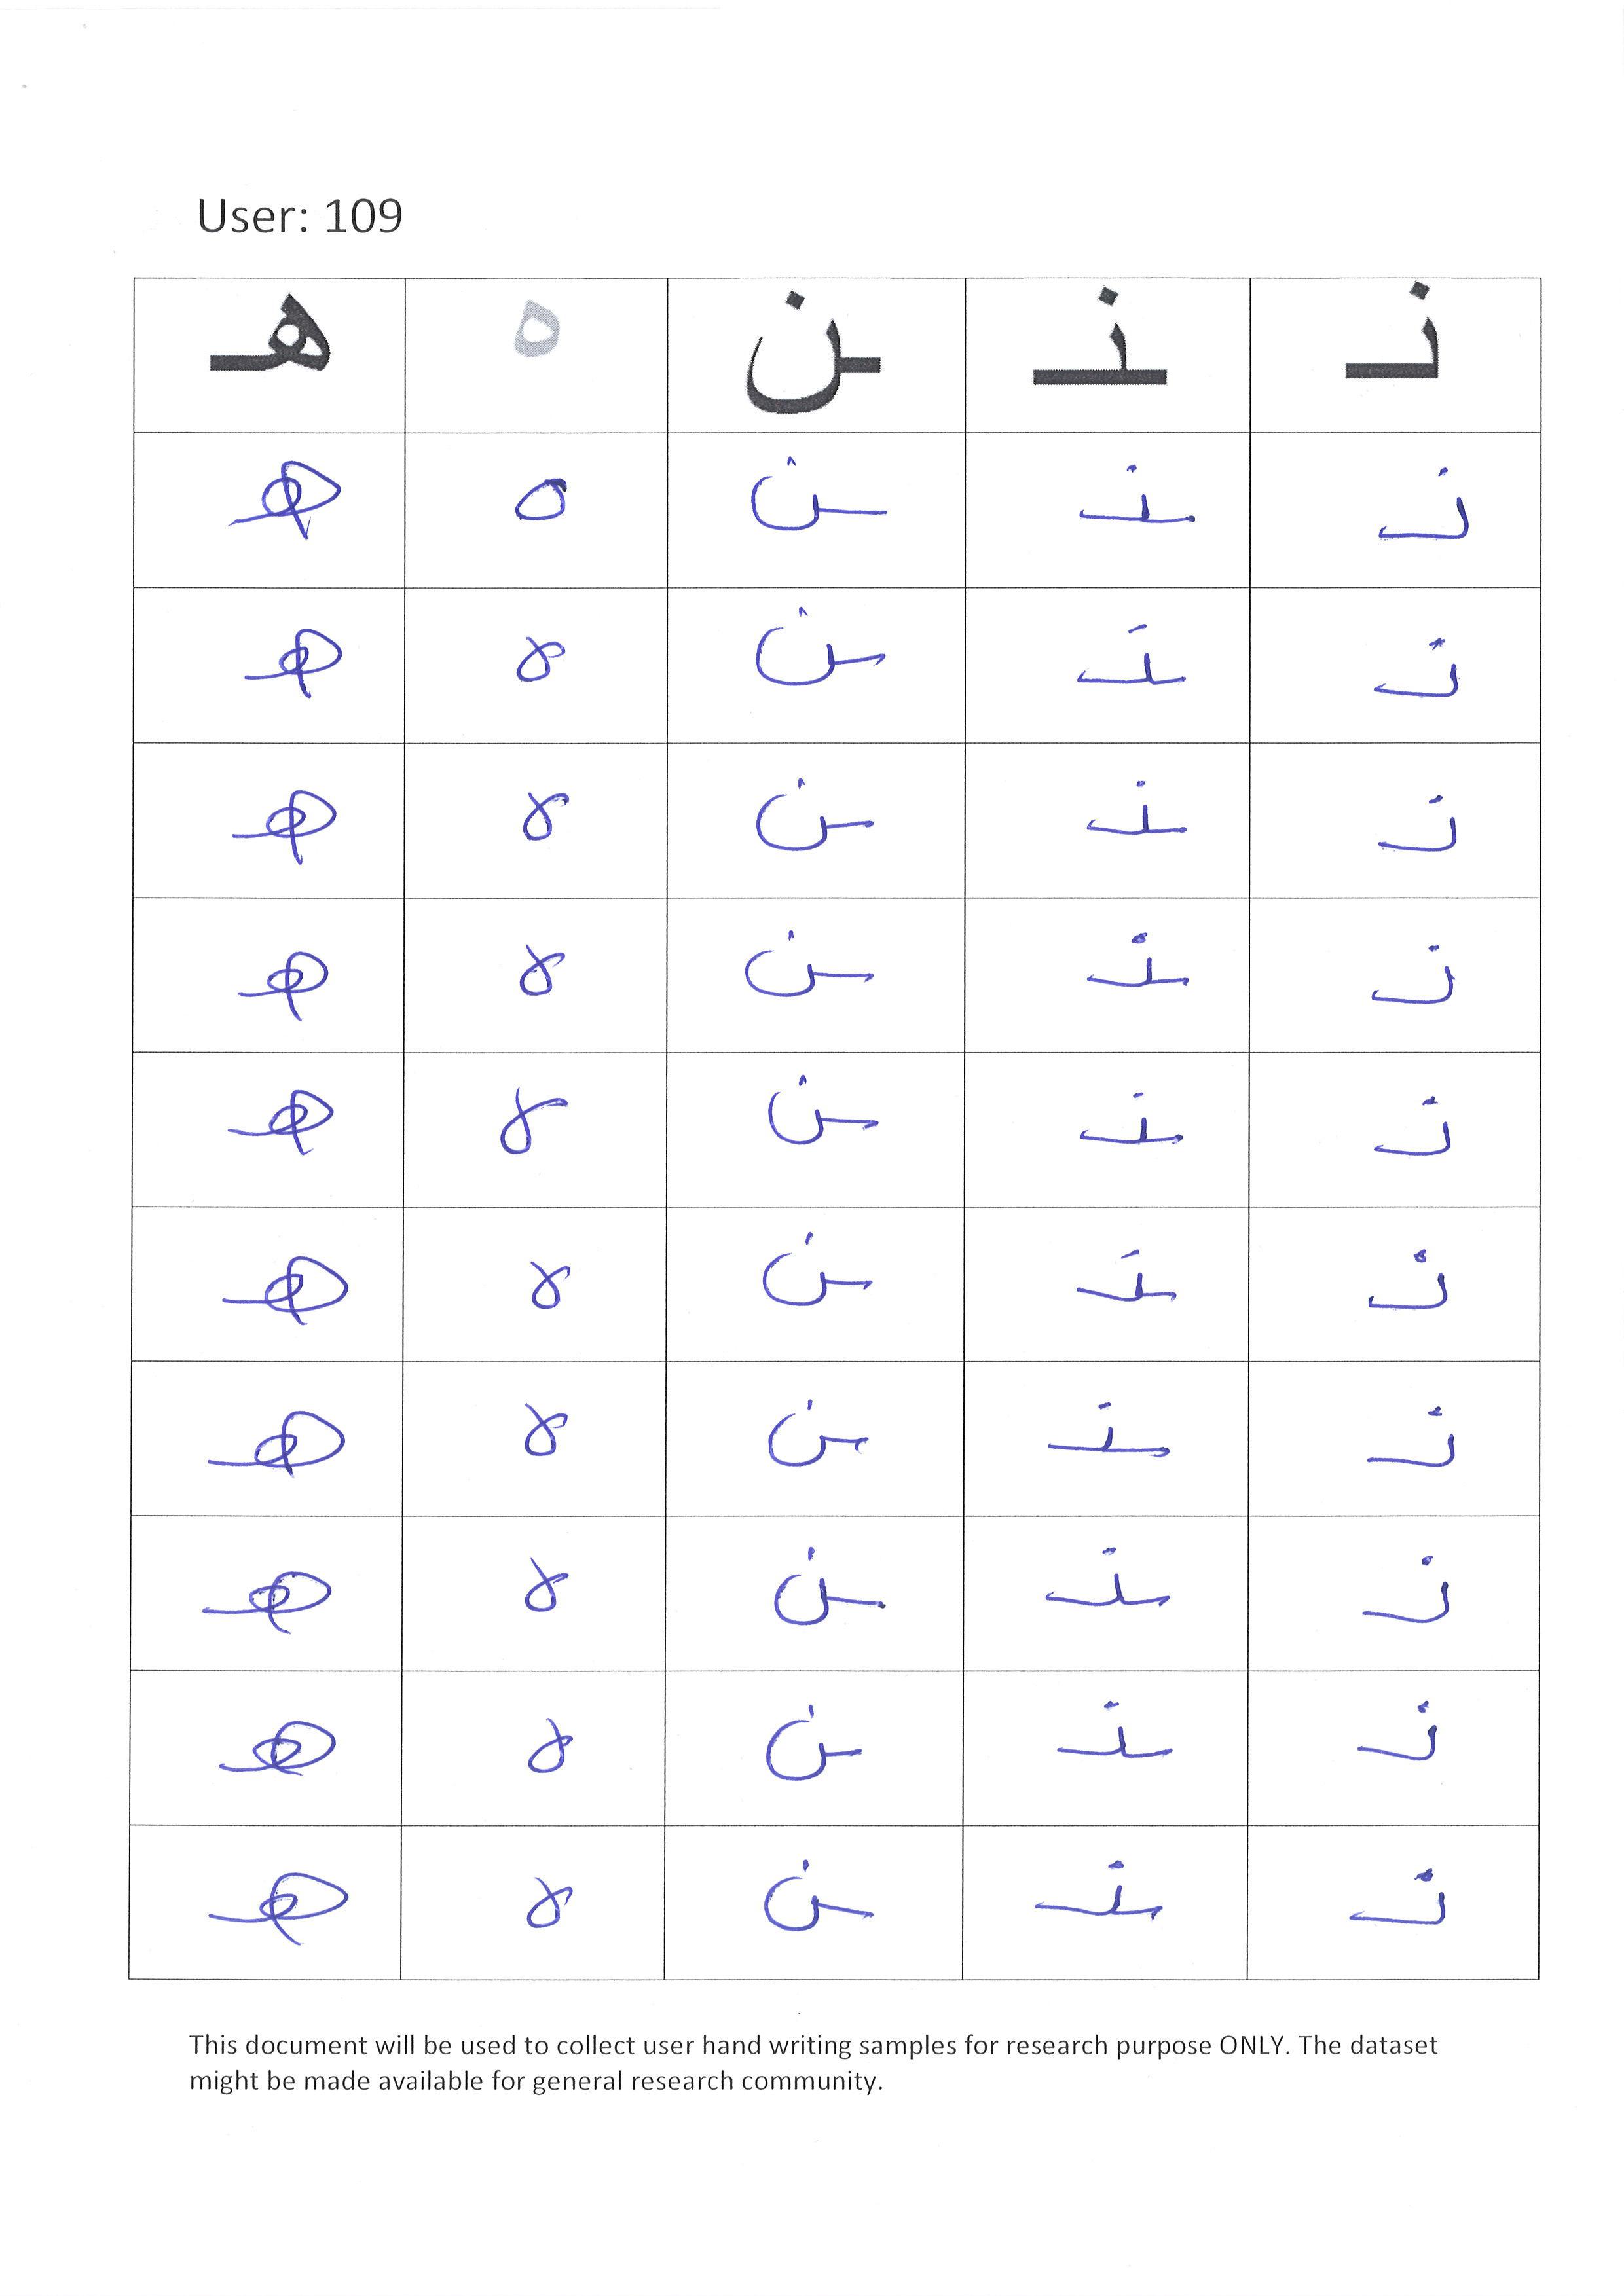 User: 109
نـ ـنـ ـن ه هـ
نـ ـنـ ـن ه هـ
نـ ـنـ ـن ه هـ
نـ ـنـ ـن ه هـ
نـ ـنـ ـن ه هـ
نـ ـنـ ـن ه هـ
نـ ـنـ ـن ه هـ
نـ ـنـ ـن ه هـ
نـ ـنـ ـن ه هـ
نـ ـنـ ـن ه هـ
نـ ـنـ ـن ه هـ
This document will be used to collect user hand writing samples for research purpose ONLY. The dataset
might be made available for general research community.